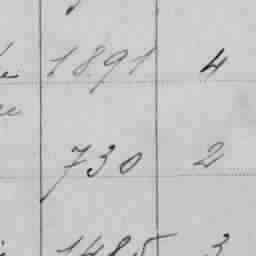 1891 4
730 2
1485 3